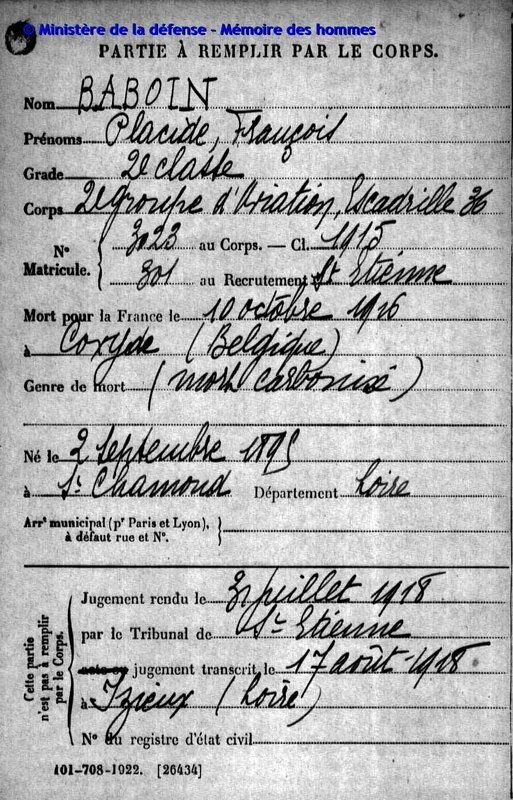 © Ministère de la défense - Mémoire des hommes
PARTIE À REMPLIR PAR LE CORPS.
Nom BABOIN
Prénoms Placide, François
Grade 2e classe
Corps 2e Groupe d'Aviation, Escadrille 36
N° Matricule. { 3023 au Corps. — Cl. 1915
301 au Recrutement St Etienne
Mort pour la France le 10 octobre 1916
à Coxyde (Belgique)
Genre de mort (mort carbonisé)
Né le 2 Septembre 1895
à St Chamond Département Loire
Arrt municipal (pr Paris et Lyon),
à défaut rue et N°.
Cette partie n'est pas à remplir par le Corps.
Jugement rendu le 31 juillet 1918
par le Tribunal de St Etienne
acte ou jugement transcrit le 17 août 1918
à Izieux (Loire)
N° du registre d'état civil
101-708-1922. [26434]